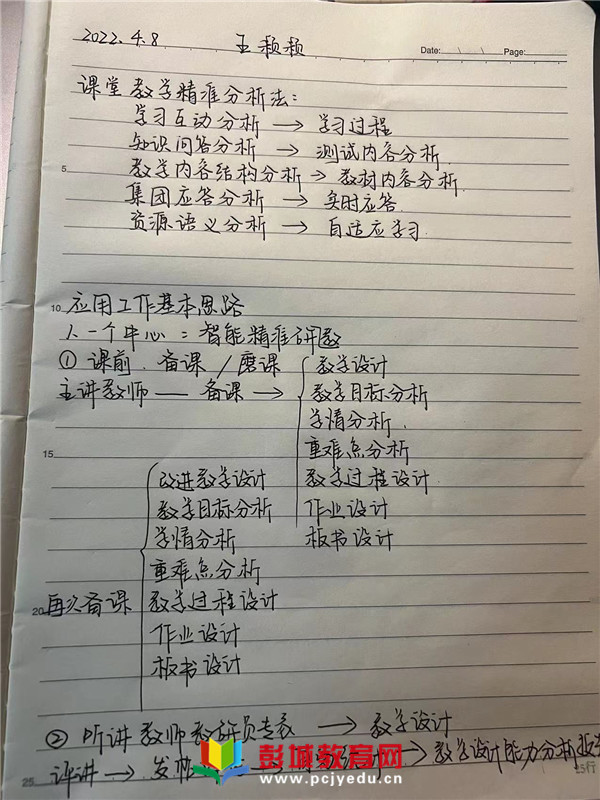 2022.4.8 王颖颖 Date: \ \ Page:
课堂教学精准分析法:
学习互动分析 → 学习过程
知识问答分析 → 测试内容分析
5 教学内容结构分析 → 教材内容分析
集团应答分析 → 实时应答
资源语义分析 → 自适应学习
10 应用工作基本思路
一个中心:智能精准研教
① 课前 备课/磨课 { 教学设计
主讲教师 — 备课 → 教学目标分析
学情分析
15 重难点分析
改进教学设计 教学过程设计
教学目标分析 作业设计
学情分析 板书设计
重难点分析
20 再次备课 { 教学过程设计
作业设计
板书设计
② 听讲教师教研员专家 → 教学设计
25 评讲 → 发帖 → 教学设计能力分析报告
25行
彭城教育网
www.pcjyedu.cn